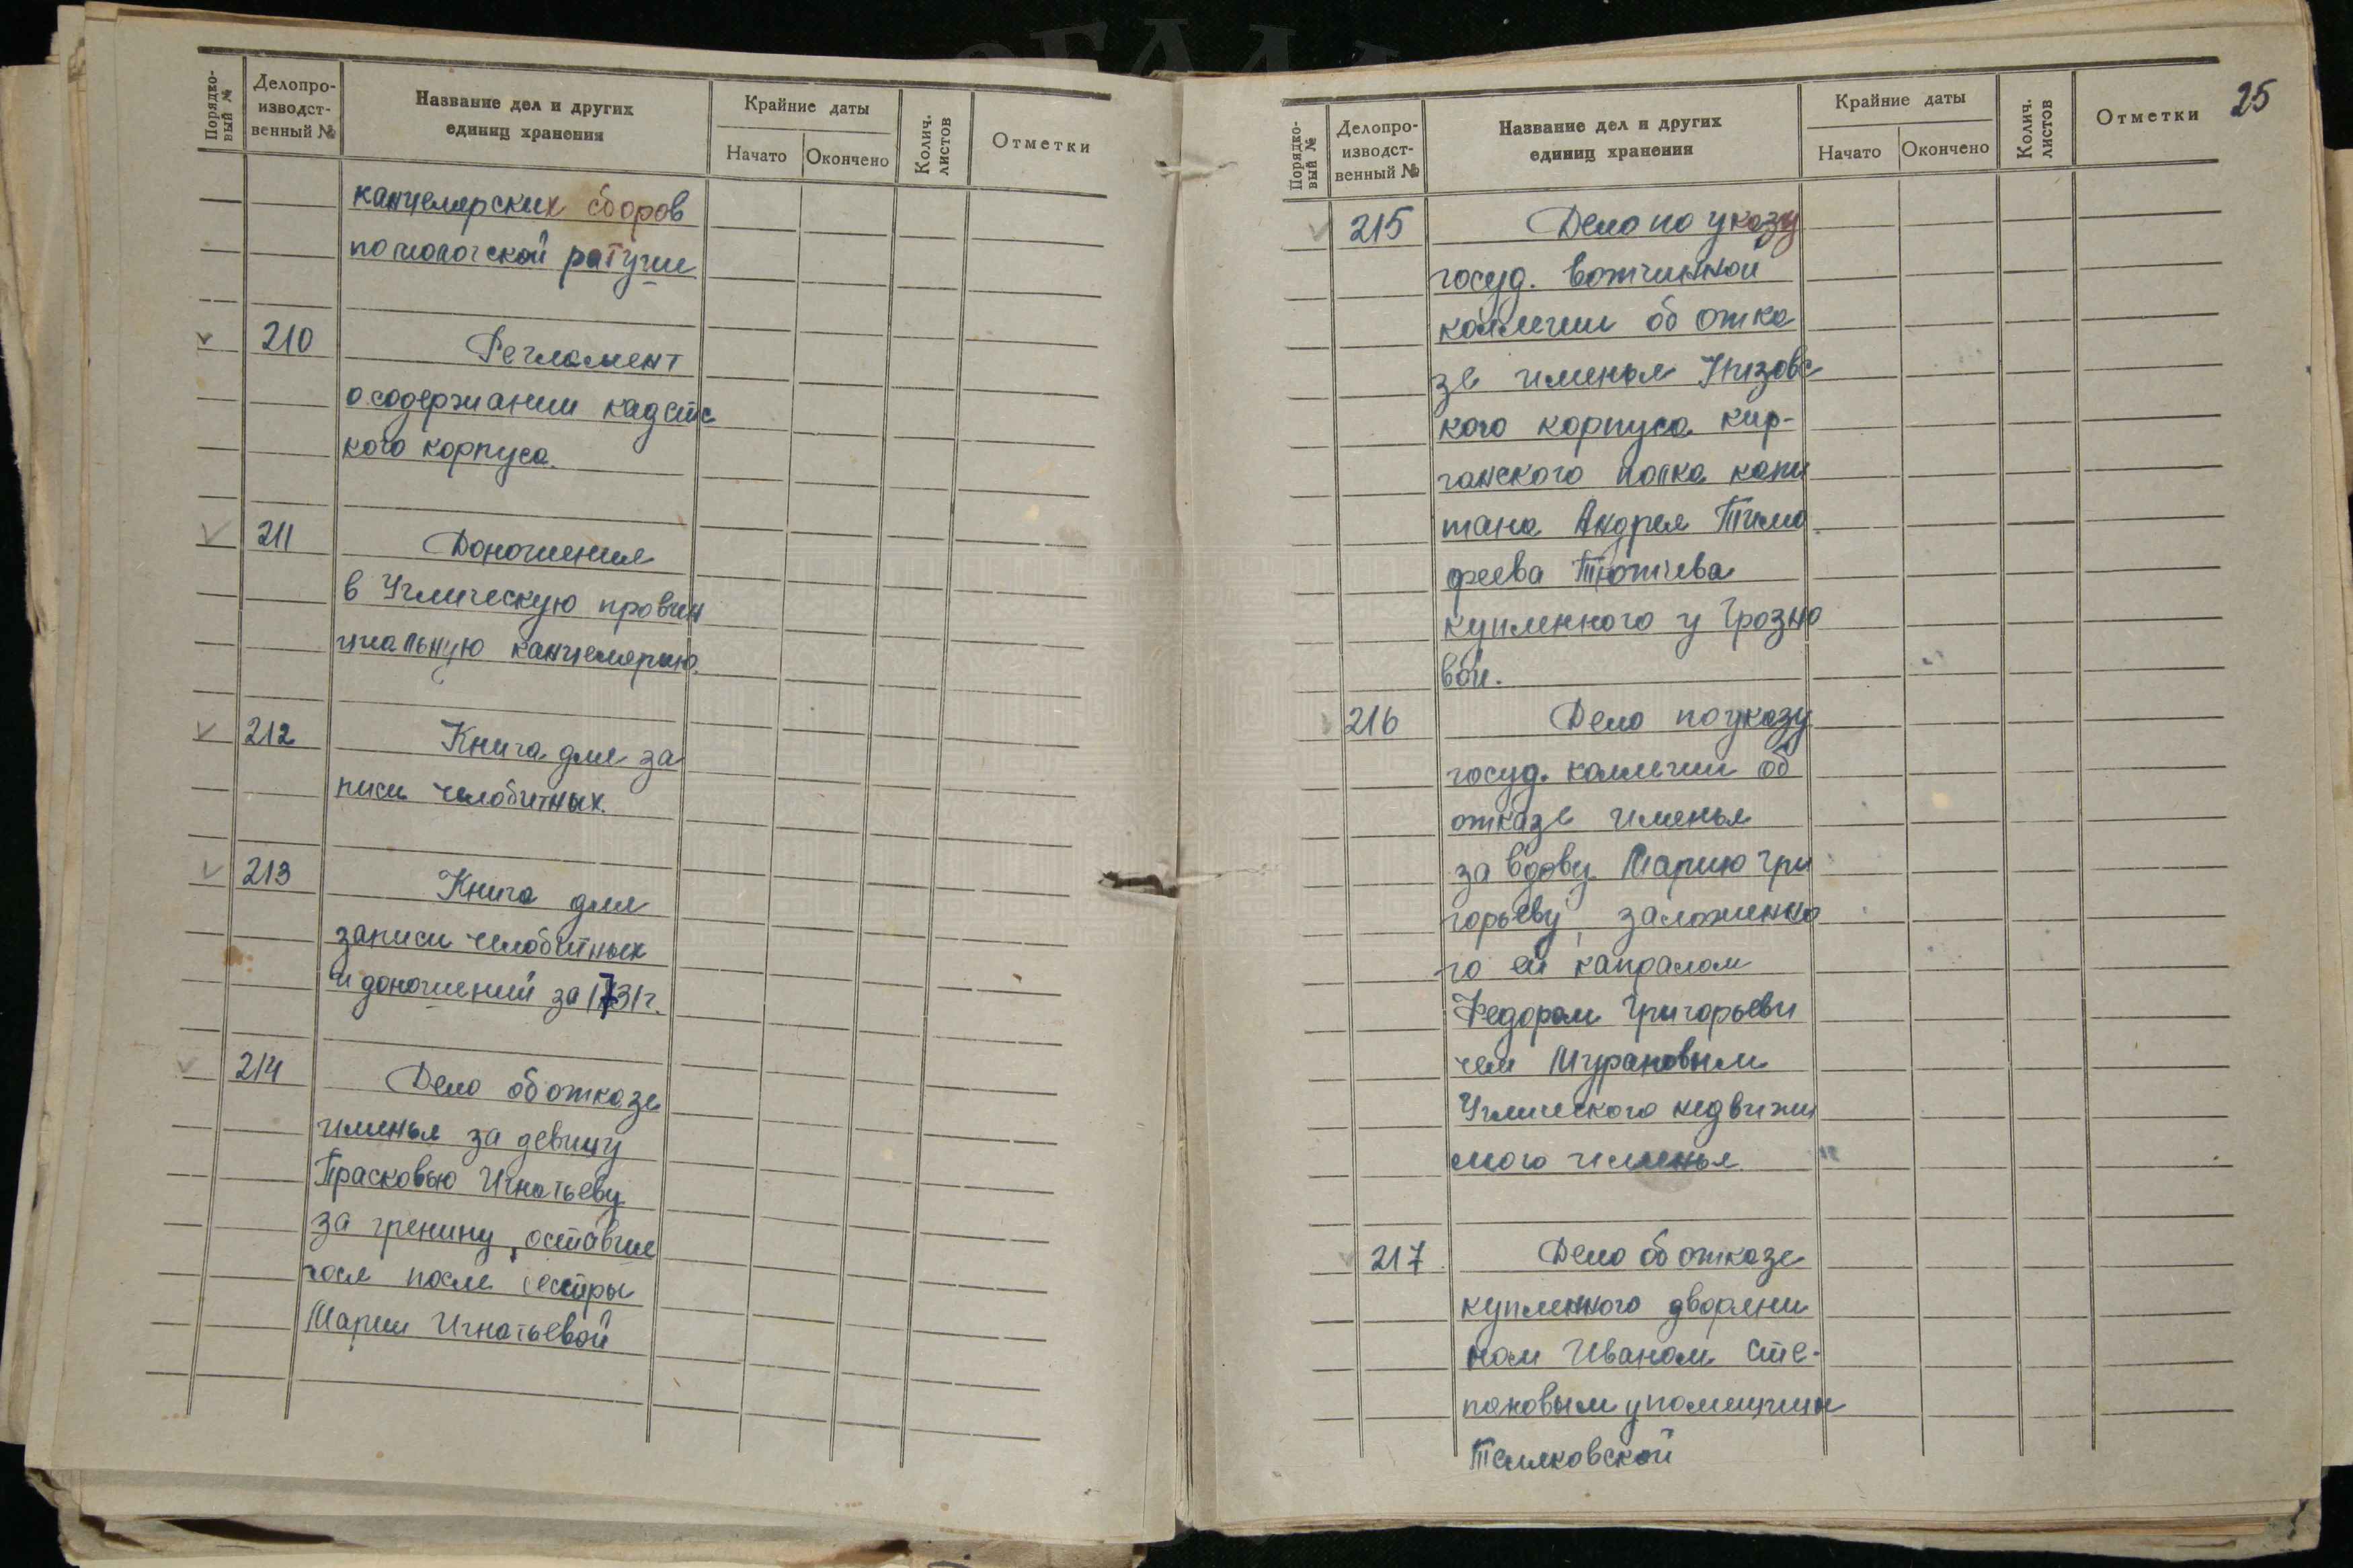 Порядко-
вый №
Делопро-
изводст-
венный №
Название дел и других
единиц хранения
Крайние даты
Начато
Окончено
Колич.
листов
Отметки
канцелярских сборов
по мологской ратуши
210
Регламент
о содержании кадетс
кого корпуса.
211
Доношения
в Угличскую провин
циальную канцелярию.
212
Книга для за
писи челобитных.
213
Книга для
записи челобитных
и доношений за 1731 г.
214
Дело об отказе
именья за девицу
Прасковью Игнатьеву
за гренину, оставше
гося после сестры
Марии Игнатьевой
25
Порядко-
вый №
Делопро-
изводст-
венный №
Название дел и других
единиц хранения
Крайние даты
Начато
Окончено
Колич.
листов
Отметки
215
Дело по указу
госуд. вотчинной
коллегии об отка
зе именья Низовс
кого корпуса кир-
ганского полка капи
тана Андрея Тимо
феева Тютчева
купленного у Грозно
вой.
216
Дело по указу
госуд. коллегии об
отказе именья
за вдову Марию Гри
горьеву, заложенно
го ей капралом
Федором Григорьеви
чем Мурановым
Угличского недвижи
мого именья
217
Дело об отказе
купленного дворяни
ном Иваном Сте-
пановым у помещицы
Телковской